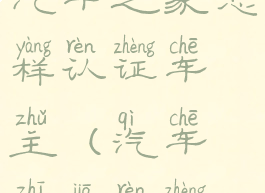 汽车之家怎
yàng rèn zhèng chē
样认证车
zhǔ qì chē
主（汽车
zhī jiā rèn zhèng